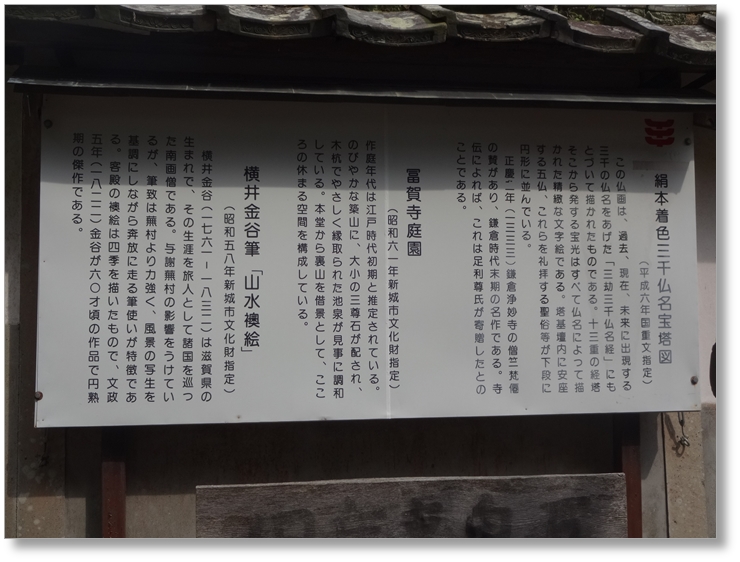 絹本着色三千仏名宝塔図
（平成六年国重文指定）
この仏画は、過去、現在、未来に出現する
三千の仏名をあげた「三劫三千仏名経」にも
とづいて描かれたものである。十三重の経塔
そこから発する宝光はすべて仏名によって描
かれた精緻な文字絵である。塔基壇内に安座
する五仏、これらを礼拝する聖俗等が下段に
円形に並んでいる。
正慶二年（一三三三）鎌倉浄妙寺の僧竺梵僊
の賛があり、鎌倉時代末期の名作である。寺
伝によれば、これは足利尊氏が寄贈したとの
ことである。
冨賀寺庭園
（昭和六一年新城市文化財指定）
作庭年代は江戸時代初期と推定されている。
のびやかな築山に、大小の三尊石が配され、
木杭でやさしく縁取られた池泉が見事に調和
している。本堂から裏山を借景として、ここ
ろの休まる空間を構成している。
横井金谷筆「山水襖絵」
（昭和五八年新城市文化財指定）
横井金谷（一七六一－一八三二）は滋賀県の
生まれで、その生涯を旅人として諸国を巡っ
た南画僧である。与謝蕪村の影響をうけてい
るが、筆致は蕪村より力強く、風景の写生を
基調にしながら奔放に走る筆使いが特徴であ
る。客殿の襖絵は四季を描いたもので、文政
五年（一八二二）金谷が六〇才頃の作品で円熟
期の傑作である。